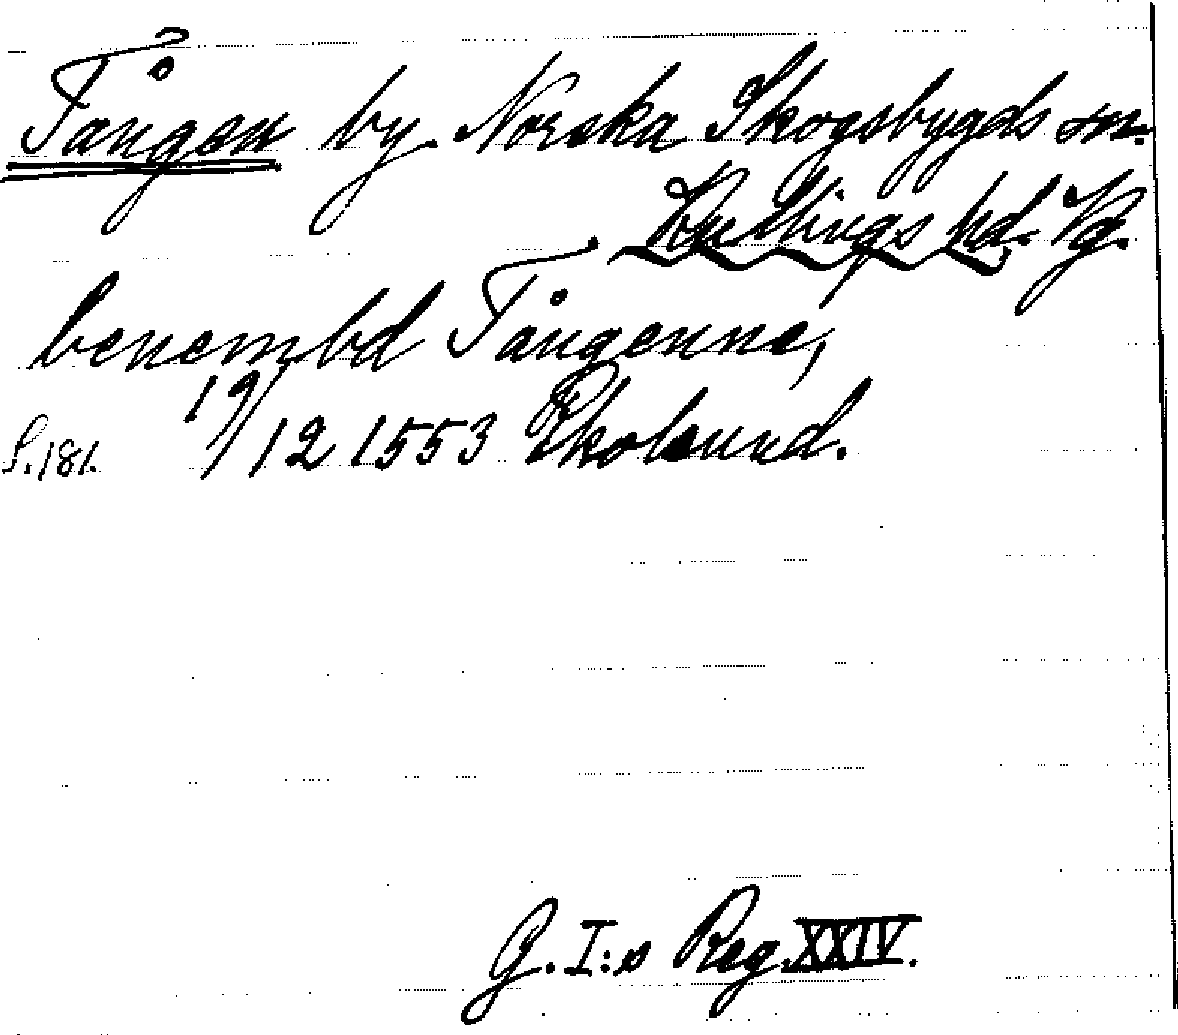 Tången by. Norska Skogsbygds sn.
Kullings hd. Vg.
benembd Tångenne,
S. 181. 19/12 1553 Ekolsund.
G. I:s Reg. XXIV.